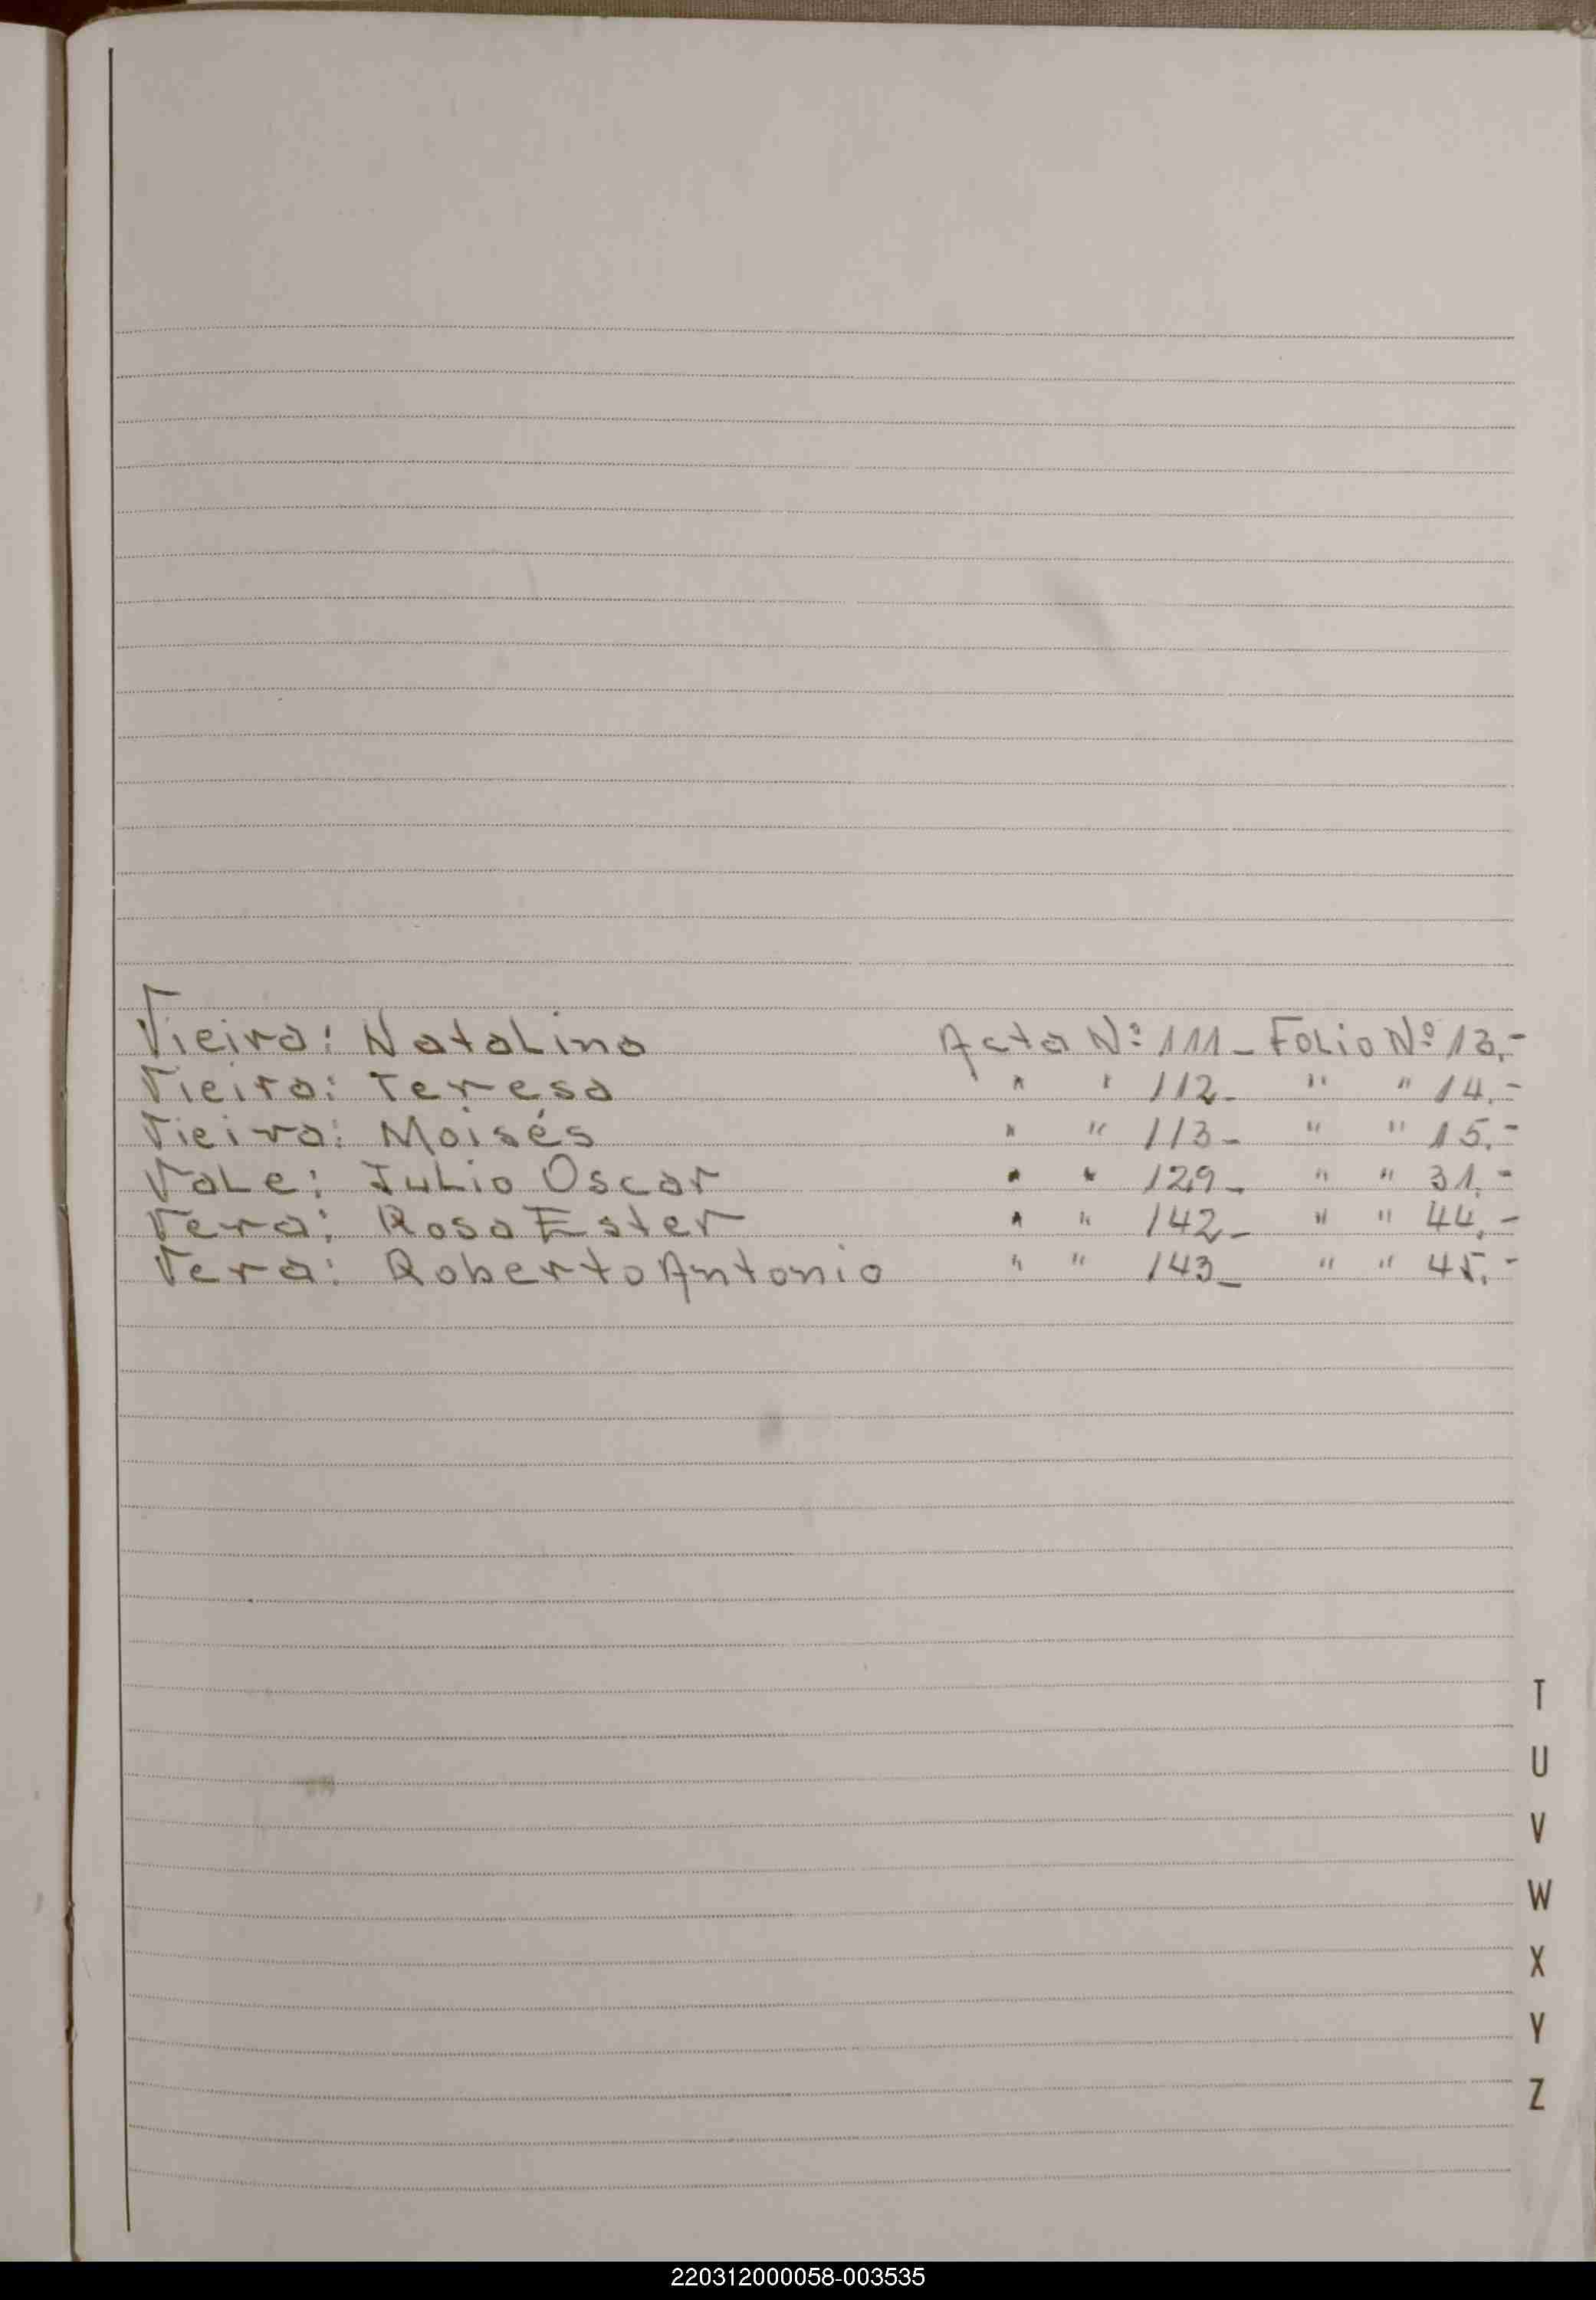 Vieira: Natalino Acta Nº 111 - Folio Nº 13.-
Vieira: Teresa " " 112- " " 14.-
Vieira: Moisés " " 113- " " 15.-
Vale: Julio Oscar " " 129- " " 31.-
Vera: Rosa Ester " " 142- " " 44.-
Vera: Roberto Antonio " " 143- " " 45.-
T
U
V
W
X
Y
Z
220312000058-003535